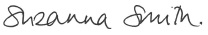 Suzanna Smith.